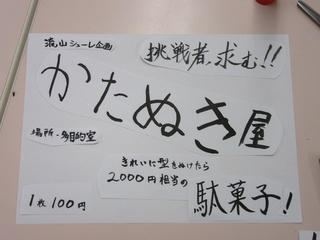 流山シューレ企画
挑戦者、求む!!
かたぬき屋
場所・多目的室
きれいに型をぬけたら
2000円相当の
駄菓子!
1枚100円